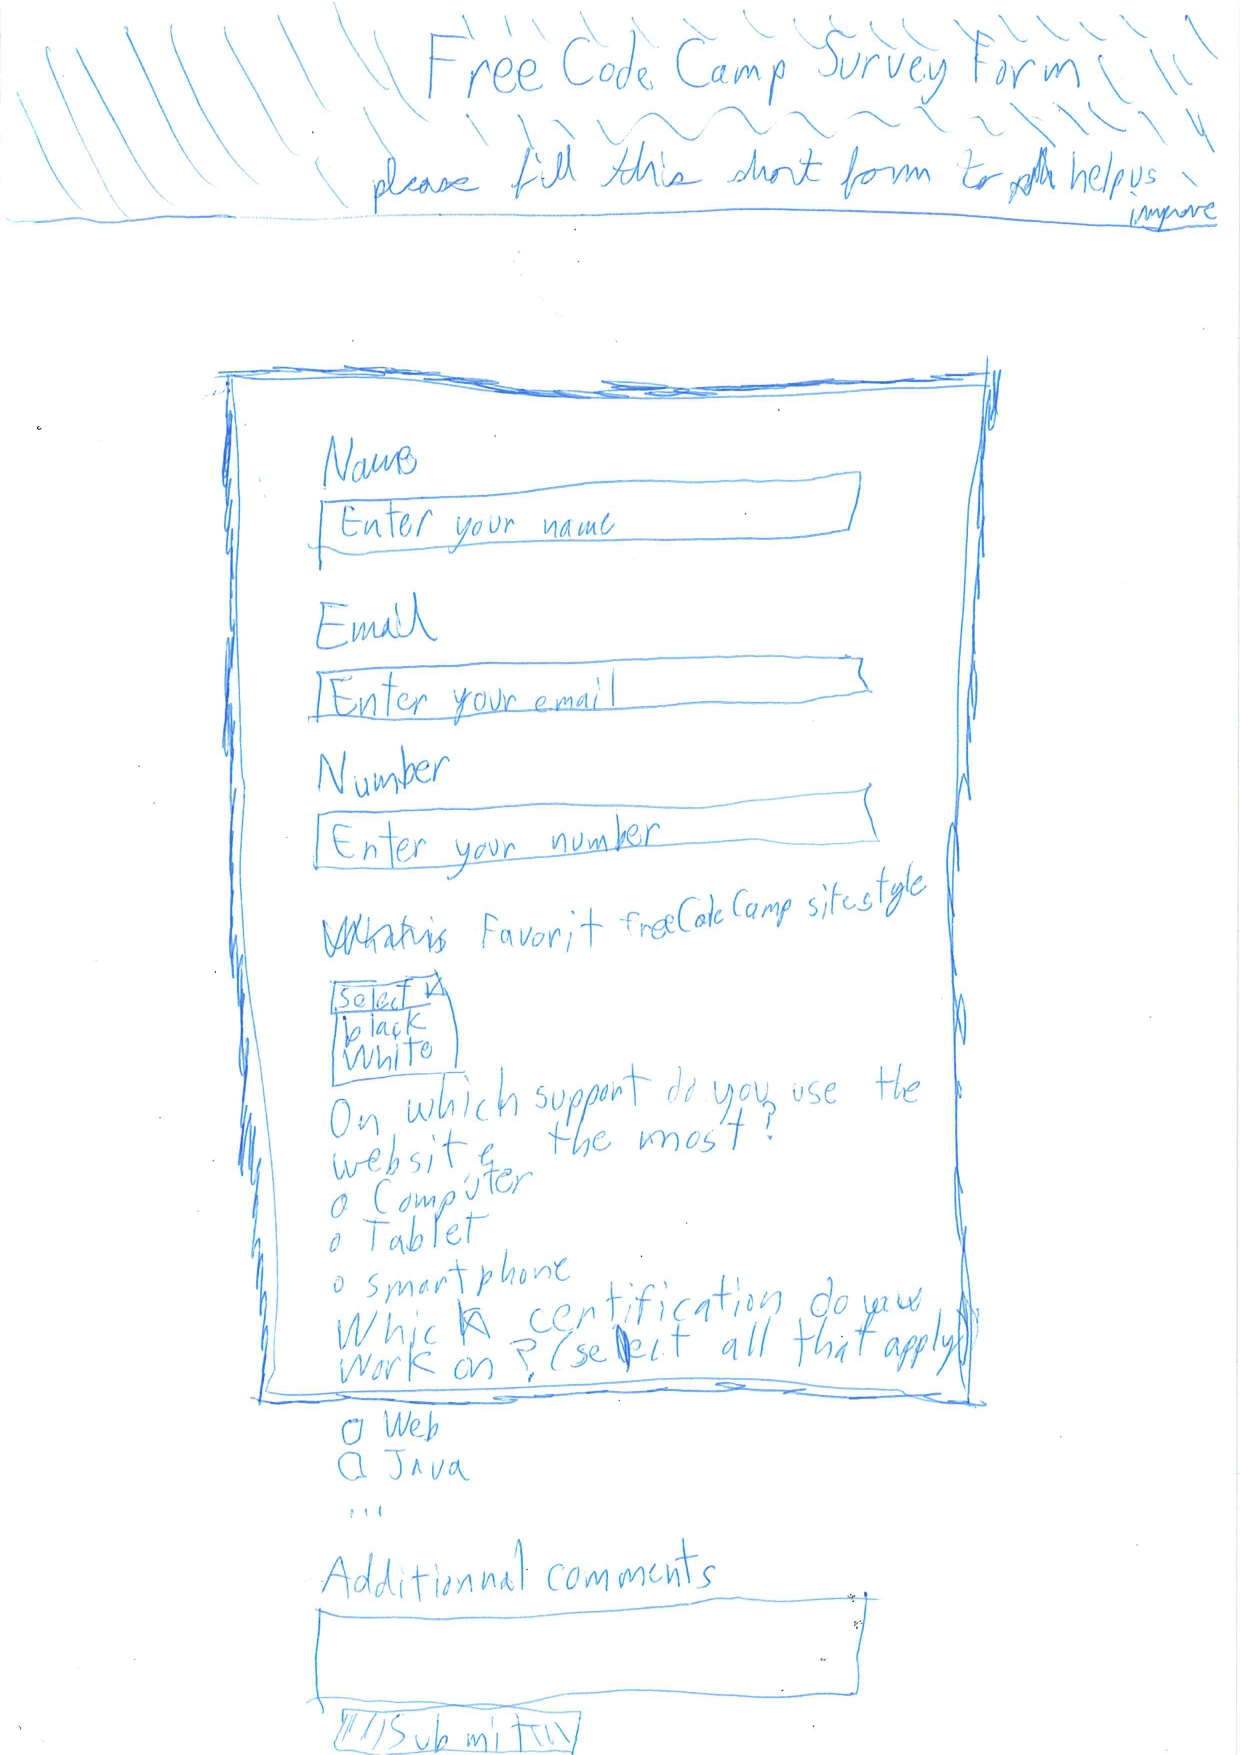 Free Code Camp Survey Form
please fill this short form to help us
improve
Name
Enter your name
Email
Enter your email
Number
Enter your number
Favorit freeCodeCamp site style
Select
black
White
On which support do you use the
website the most?
o Computer
o Tablet
o smartphone
Which certification do you
work on? (select all that apply)
Web
Java
...
Additionnal comments
Submit